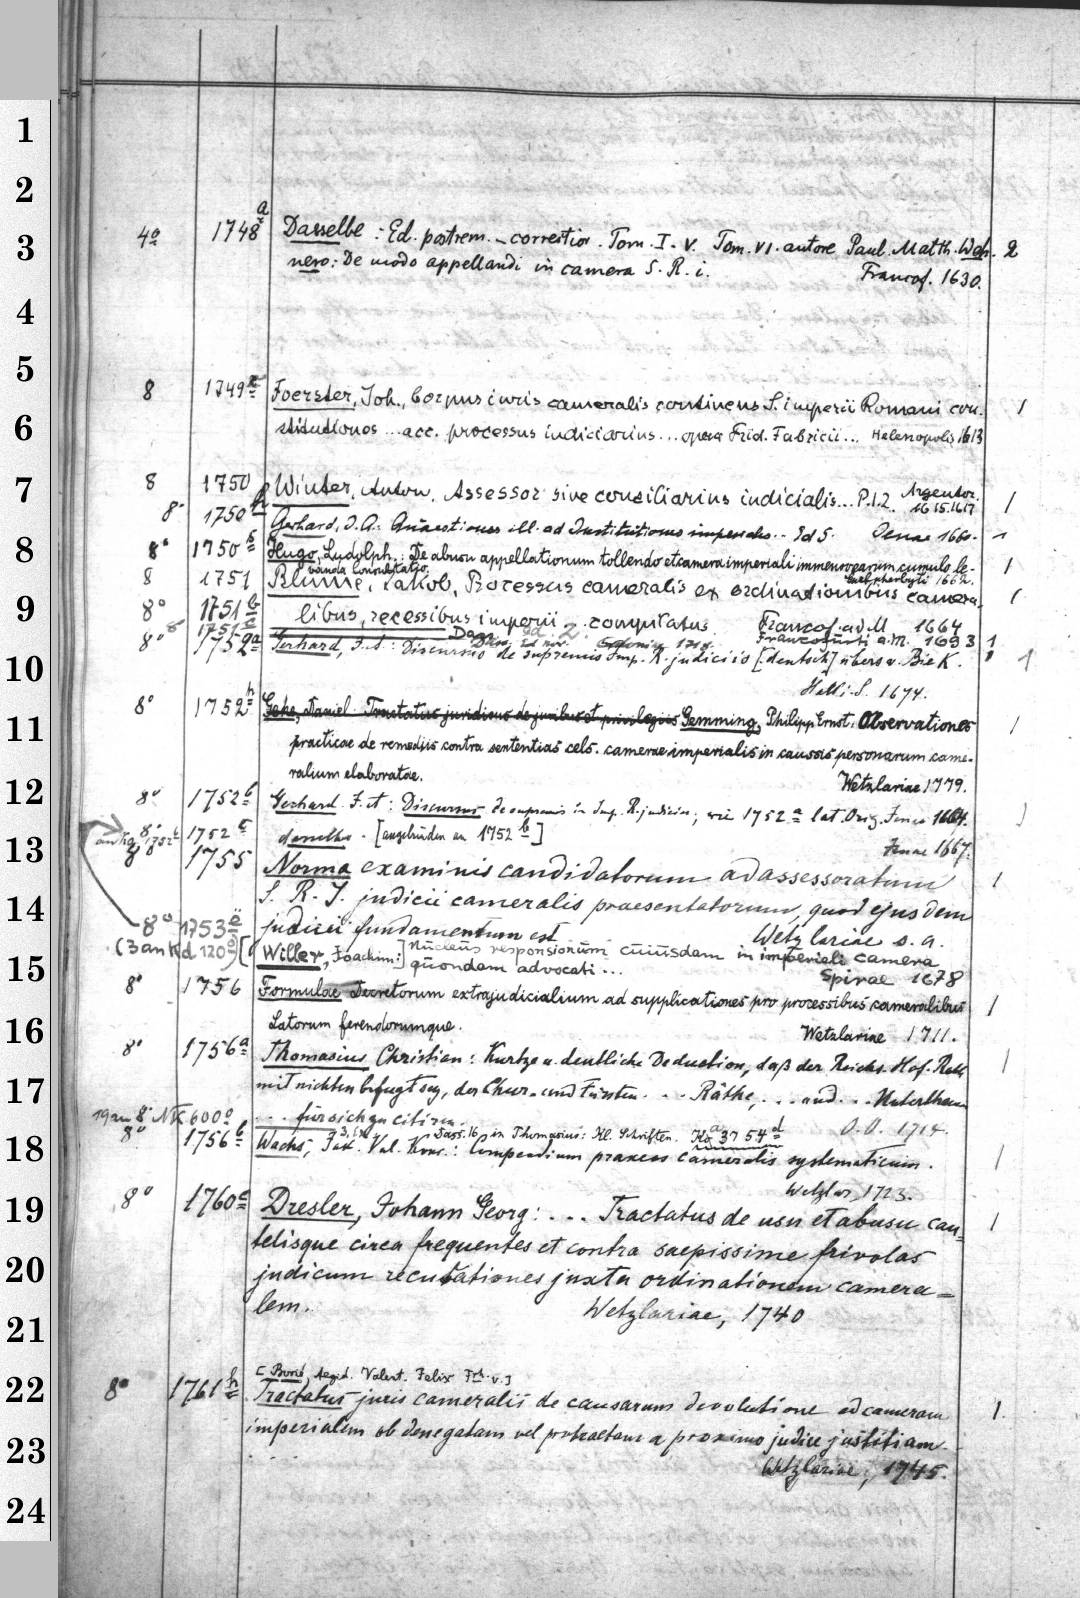 1
2
3
4º 1748 a Dasselbe: Ed. postrem. correctior. Tom. I-V. Tom. VI. autore Paul. Matth. Weh- 2
nero: De modo appellandi in camera S. R. i. Francof. 1630.
4
5
8 1749 a Foerster, Joh., Corpus iuris cameralis continens S. imperii Romani con- 1
6
stitutiones ... acc. processus iudiciarius ... opera Frid. Fabricii ... Helenopolis 1613
7
8 1750 Winter, Anton. Assessor sive consiliarius iudicialis ... P. 1.2. Argentor. 1615.1617 1
8º 1750 Gerhard, J. A.: Quaestiones ill. ad Institutiones imperiales .. Ed 5. Jenae 1660. 1
8
8º 1750 b Hugo, Ludolph.: De abusu appellationum tollendo et camera imperiali immensoarum cumulo le- 1
vanda consultatio. 1662.
8 1751 Blume, Jakob, Processus cameralis ex ordinationibus camera- 1
9
8º 1751 b libus, recessibus imperii compilatus. Francof. ad M. 1664
8º 1751 c Dass. Ed. 2. Francofurti a. M. 1693 1
8º 1752 a Gerhard, J. A.: Discursus de supremis Imp. R. judiciis [deutsch] übers v. Biek. 1
10
Hall. S. 1674.
11
8º 1752 Geke, Daniel. Tractatus juridicus de juribus et privilegiis Gemming, Philipp Ernst: Observationes 1
practicae de remediis contra sententias cels. camerae imperialis in causis personarum came-
ralium elaboratae. Wetzlariae 1779.
12
8º 1752 b Gerhard J. A: Discursus de supremis in Imp. R. judiciis; wie 1752 a lat. Orig. Jenae 1664.
8º 1752 c dasselbe. [angebunden an 1752 b] Jenae 1667.
13
8º 1755 Norma examinis candidatorum ad assessoratum 1
14
S. R. I. judicii cameralis praesentatorum, quod ejusdem
judicii fundamentum est Wetzlariae s. a.
8º 1753 a
(3 an Kd 120 a) [Willer, Joachim:] Nucleus responsionum cuiusdam in imperiali camera
15
quondam advocati ... Spirae 1678
8º 1756 Formulae Decretorum extrajudicialium ad supplicationes pro processibus cameralibus 1
16
Latorum ferendorumque. Wetzlariae 1711.
8º 1756 a Thomasius Christian: Kurtze u. deutliche Deduction, daß der Reichs-Hof-Rath 1
17
mit nichten befugt sey, der Chur- und Fürsten ... Räthe, ... und ... Unterthanen
19 an 8º NK 600 a ... für sich zu citiren. O. O. 1714.
Dass. 16 in Thomasius: Kl. Schriften. Ka 3754 d
18
8º 1756 b Wachs, Jak. Val. Konr.: Compendium praxeos cameralis systematicum. 1
Wetzlar, 1723.
19
8º 1760 a Dresler, Johann Georg: ... Tractatus de usu et abusu cau- 1
telisque circa frequentes et contra saepissime frivolas
20
judicum recusationes juxta ordinationem camera=
lem. Wetzlariae, 1740
21
[Borié, Aegid. Valent. Felix Frh. v.]
22
8º 1761 h Tractatus juris cameralis de causarum devolutione ad cameram 1.
imperialem ob denegatam vel protractam a proximo judice justitiam.
23
Wetzlariae, 1745.
24